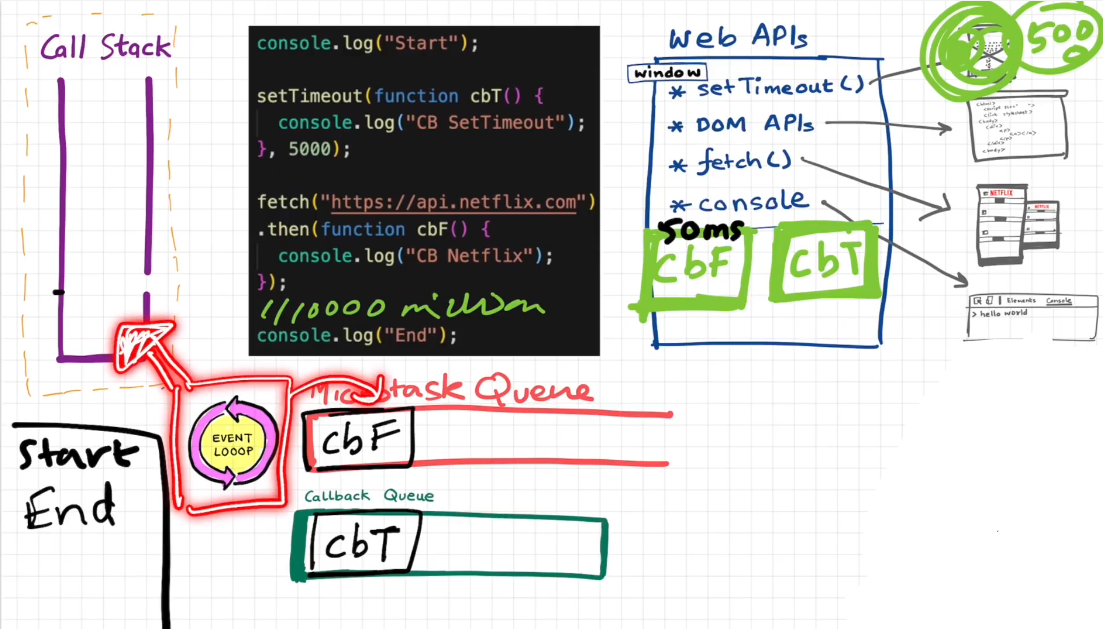 Call Stack
console.log("Start");
setTimeout(function cbT() {
console.log("CB SetTimeout");
}, 5000);
fetch("https://api.netflix.com")
.then(function cbF() {
console.log("CB Netflix");
});
10000 million
console.log("End");
Web APIs
window
* setTimeout()
* DOM APIs
* fetch()
* console
50ms
cbF
cbT
5000
NETFLIX
NETFLIX
Elements Console
> hello world
Start
End
EVENT
LOOOP
Microtask Queue
cbF
Callback Queue
cbT